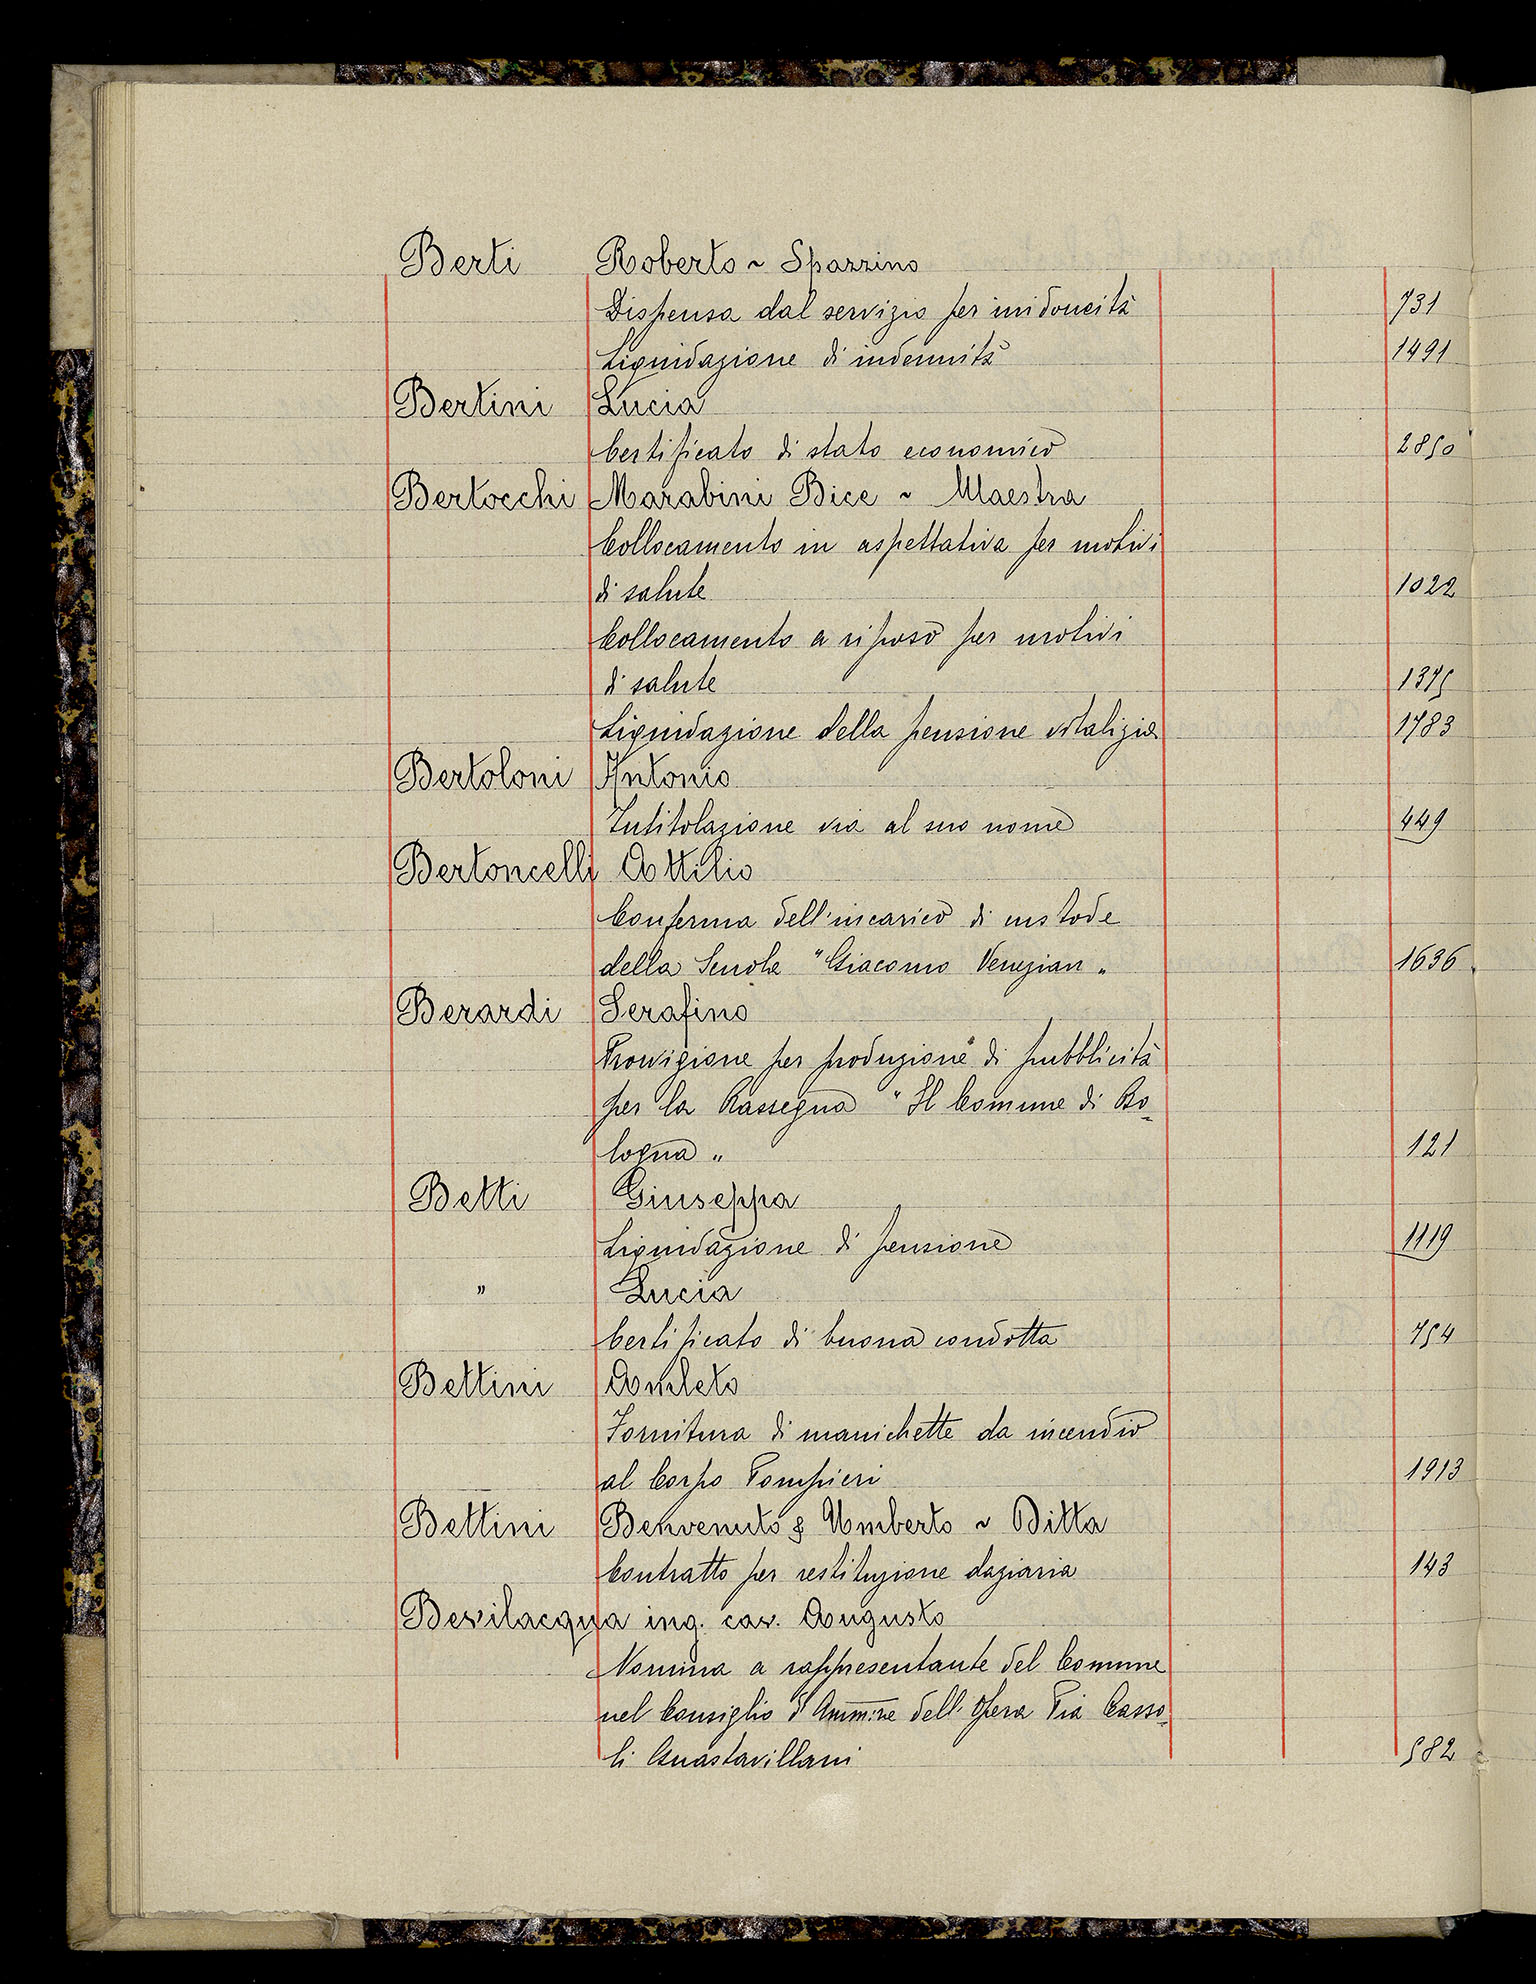 Berti Roberto ~ Spazzino
Dispensa dal servizio per inidoneità 731
Liquidazione di indennità 1491
Bertini Lucia
Certificato di stato economico 2850
Bertocchi Marabini Bice ~ Maestra
Collocamento in aspettativa per motivi
di salute 1022
Collocamento a riposo per motivi
di salute 1375
Liquidazione della pensione vitalizia 1783
Bertoloni Antonio
Intitolazione via al suo nome 449
Bertoncelli Attilio
Conferma dell'incarico di custode
della Scuola "Giacomo Venezian„ 1636
Berardi Serafino
Provvigione per produzione di pubblicità
per la Rassegna "Il Comune di Bo-
logna„ 121
Betti Giuseppa
Liquidazione di pensione 1119
" Lucia
Certificato di buona condotta 754
Bettini Amleto
Fornitura di manichette da incendio
al Corpo Pompieri 1913
Bettini Benvenuto & Umberto ~ Ditta
Contratto per restituzione daziaria 143
Bevilacqua ing. cav. Augusto
Nomina a rappresentante del Comune
nel Consiglio d'Amm.ne dell'Opera Pia Casso-
li Guastavillani 582